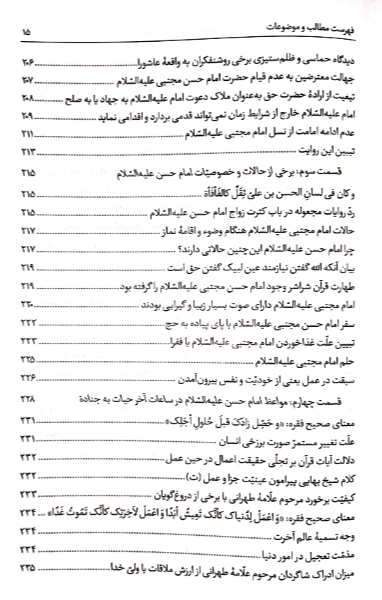 فهرست مطالب و موضوعات ۱۵
دیدگاه حماسی و ظلم‌ستیزی برخی روشنفکران به واقعهٔ عاشورا ۲۰۶
جهالت معترضین به عدم قیام حضرت امام حسن مجتبی علیه‌السّلام ۲۰۷
تبعیت از ارادهٔ حضرت حق به‌عنوان ملاک دعوت امام علیه‌السّلام به جهاد یا به صلح ۲۰۸
امام علیه‌السّلام خارج از شرایط زمان نمی‌تواند قدمی بردارد و اقدامی نماید ۲۰۹
عدم ادامه امامت از نسل امام مجتبی علیه‌السّلام ۲۱۱
تبیین این روایت ۲۱۳
قسمت سوم: برخی از حالات و خصوصیّات امام حسن علیه‌السّلام ۲۱۵
و کان فی لسانِ الحسن بن علیٍّ ثِقَلٌ کالفَأفَأة ۲۱۵
ردّ روایات مجعوله در باب کثرت زواج امام حسن علیه‌السّلام ۲۱۵
حالات امام مجتبی علیه‌السّلام هنگام وضوء و اقامهٔ نماز ۲۱۷
چرا امام حسن علیه‌السّلام این‌چنین حالاتی دارند؟ ۲۱۷
بیان آنکه الله گفتن نیازمند عین لبیک گفتن حق است ۲۱۹
طهارت قرآن شراشر وجود امام حسن علیه‌السّلام را گرفته بود ۲۱۹
امام مجتبی علیه‌السّلام دارای صوت بسیار زیبا و گیرایی بودند ۲۲۰
سفر امام حسن مجتبی علیه‌السّلام با پای پیاده به حج ۲۲۲
تبیین علّت غذاخوردن امام مجتبی علیه‌السّلام با فقرا ۲۲۳
حلم امام مجتبی علیه‌السّلام ۲۲۵
سبقت در عمل یعنی از خودیّت و نفس بیرون‌آمدن ۲۲۶
قسمت چهارم: مواعظ امام حسن علیه‌السّلام در ساعات آخر حیات به جنادة ۲۲۸
معنای صحیح فقره: «و حَصِّل زادَکَ قبلَ حُلولِ أجَلِک» ۲۳۱
علّت تغییر مستمرّ صورت برزخی انسان ۲۳۱
دلالت آیات قرآن بر تجلّی حقیقت اعمال در حین عمل ۲۳۲
کلام شیخ بهایی پیرامون عینیّت جزا و عمل (ت) ۲۳۲
کیفیّت برخورد مرحوم علّامهٔ طهرانی با برخی از دروغ‌گویان ۲۳۳
معنای صحیح فقره: «وَ اعْمَلْ لِدُنیاکَ کأنَّکَ تَعیشُ أبَدًا وَ اعْمَلْ لآخِرَتِکَ کأنَّکَ تَموتُ غَدًا» ۲۳۴
وجه تسمیهٔ عالم آخرت ۲۳۴
مذمّت تعجیل در امور دنیا ۲۳۴
میزان ادراک شاگردان مرحوم علّامهٔ طهرانی از ارزش ملاقات با ولیّ خدا ۲۳۵